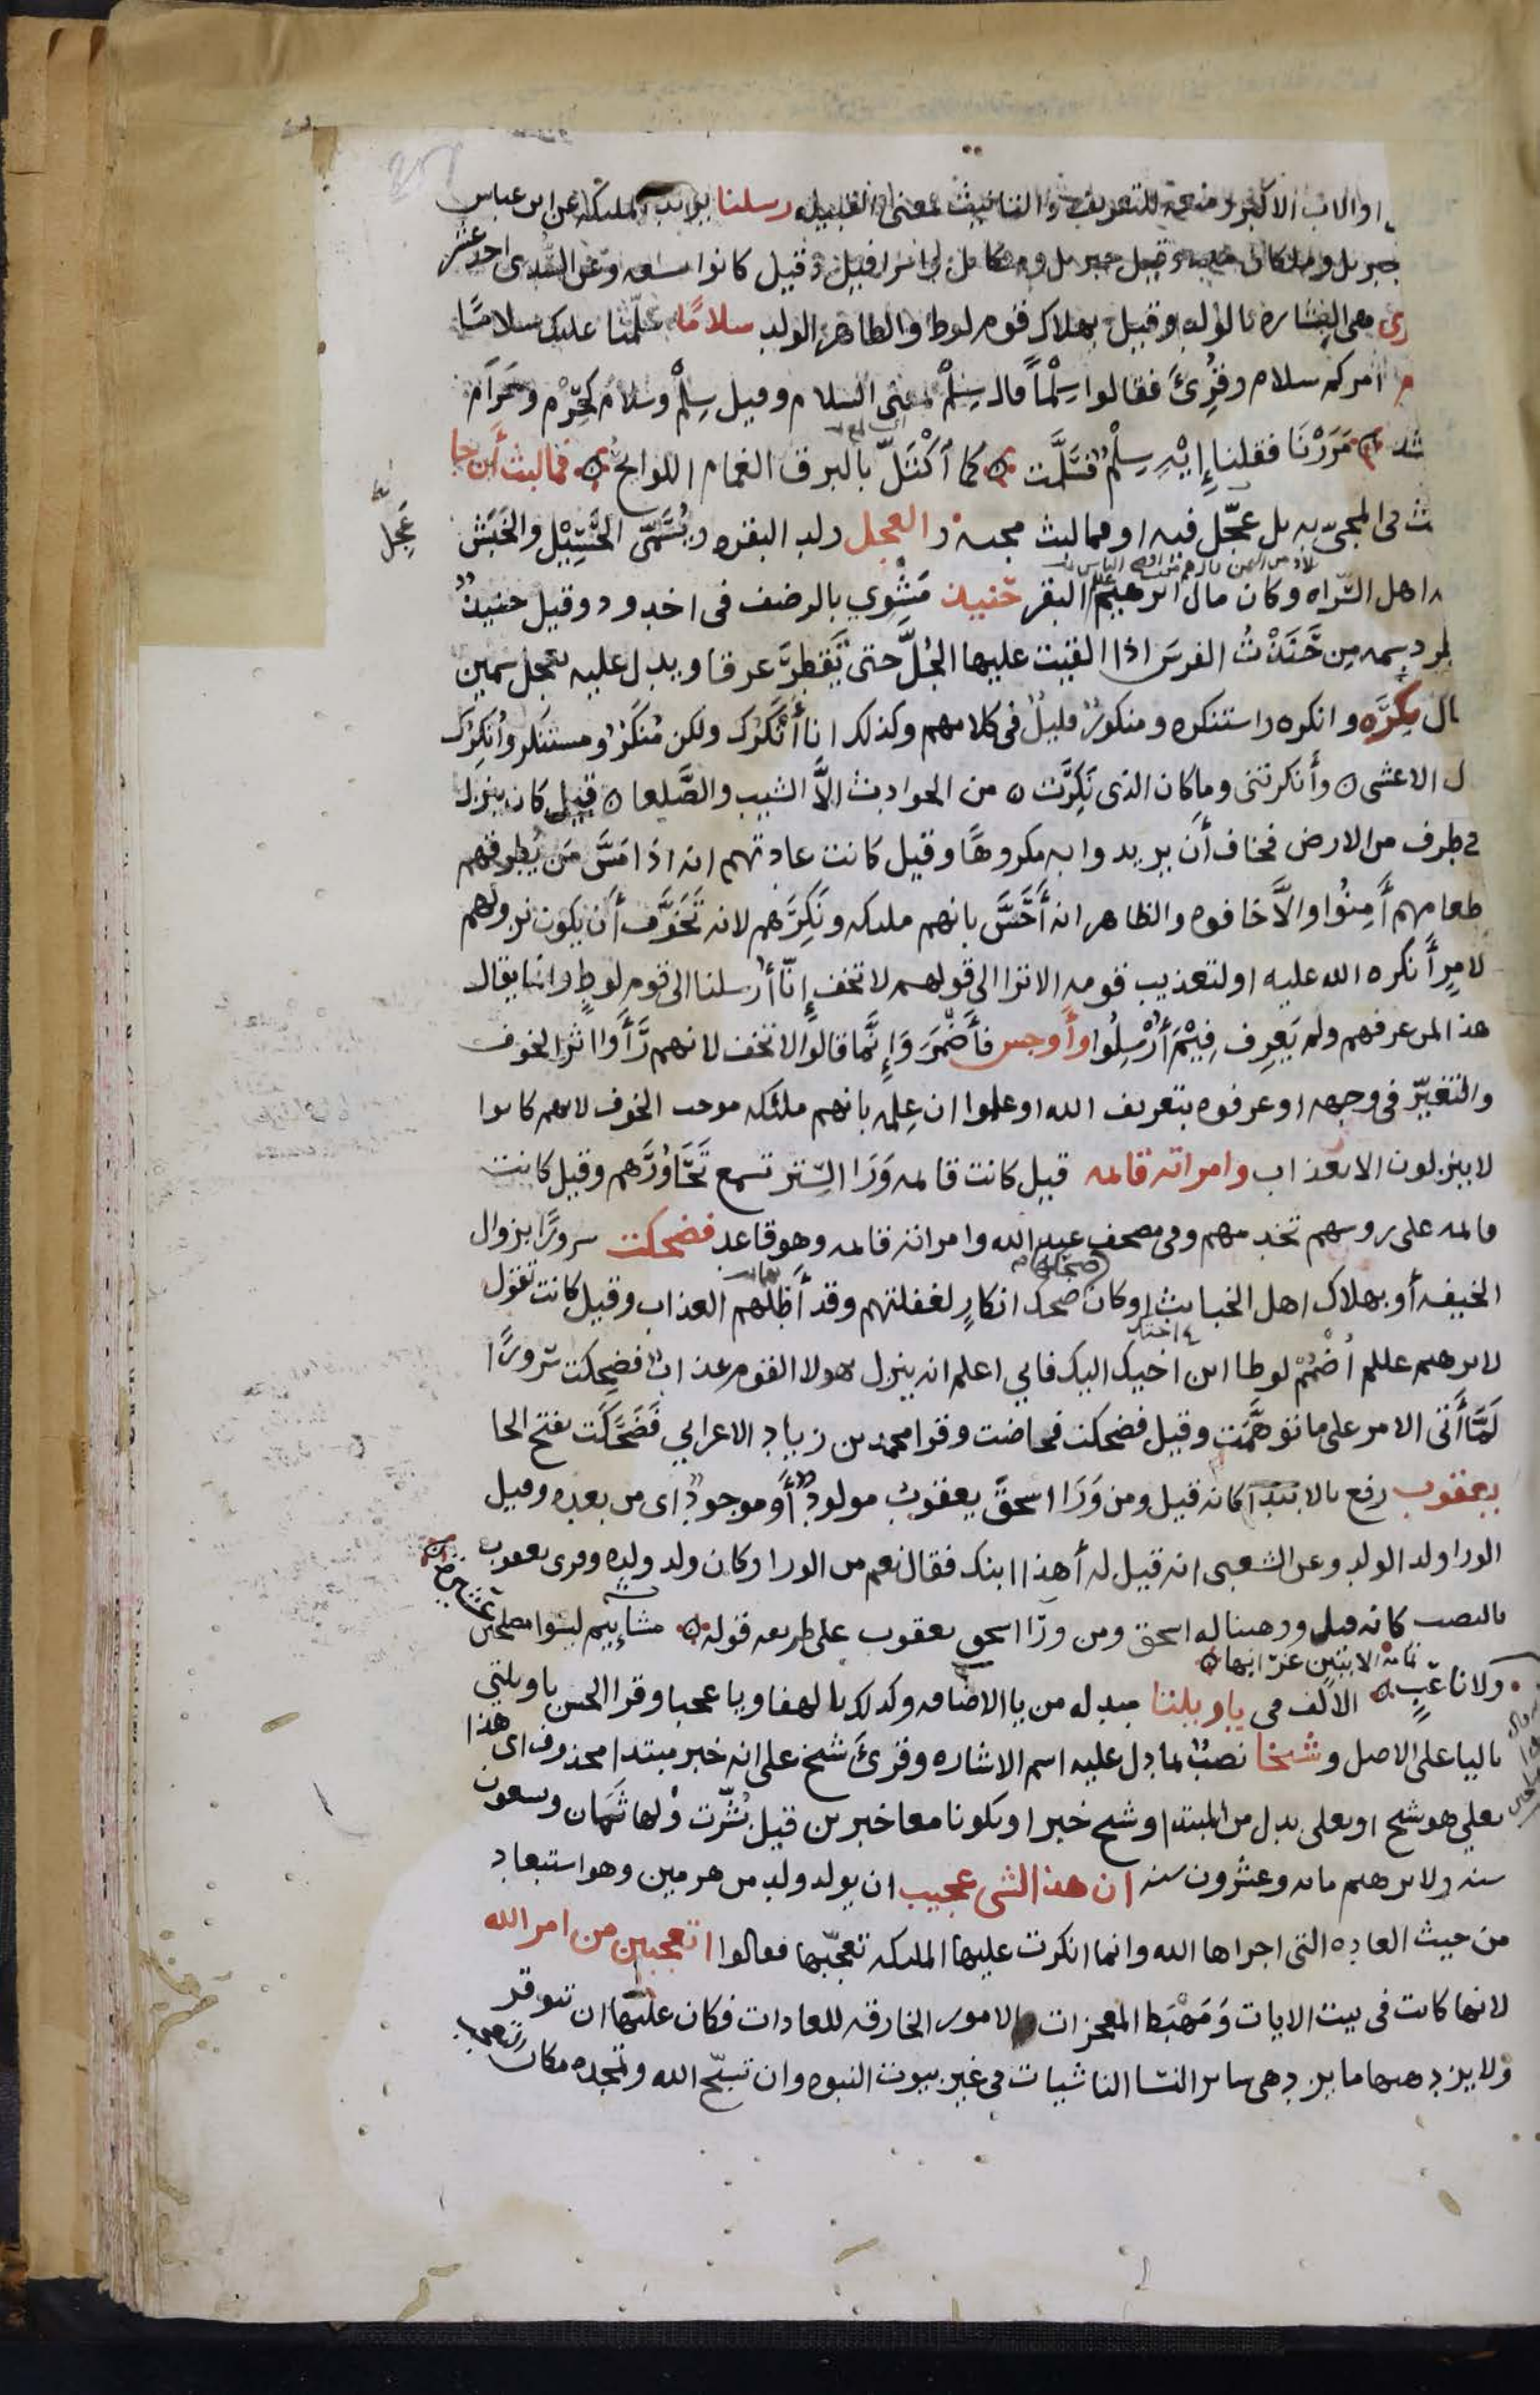 او الاب الاكبر ومنعه للتعريف والتانيث بمعنى القبيله رسلنا يريد الملىكه عن ابن عباس
جبريل وملكان معه وقيل جبريل وميكائيل واسرافيل وقيل كانوا تسعه وعن السدى احد عشر
رى هى البشاره بالولد وقيل بهلاك قوم لوط والظاهر الولد سلامًا سلّمنا عليك سلامًا
م امركم سلام وقُرِئَ فقالوا سِلْماً قال سِلْمٌ بمعنى السلام وقيل سِلْم وسلام كحِرْم وحَرَام
شد مَرَرْنَا فقلنا إِيْهِ سِلْمٌ فسَلَّمَت ۞ كما آكْتَلَّ بالبرق الغمام اللوائح ۞ فما لبث أن جا
ث فى المجيء به بل عجّل فيه او فما لبث مجيئه والعجل ولد البقره ويُسَمّى الحَسِيْل والخَبَش
عِجْل
اهل السَّراه وكان مال ابرهيم عللم البقر حَنيذ مَشْوِي بالرضف فى اخدود وقيل حنيذٌ
يقطر دسمه مِن حَنَذْتُ الفرسَ اذا القيت عليها الجُلَّ حتى تَقطِرَ عرقا ويدل عليه بعجل سمين
ال نَكِرَه وانكره واستنكره ومنكورٌ قليلٌ فى كلامهم وكذلك انا أَنْكَرُكَ ولكن مُنْكَرٌ ومستنكر وأُنكِرُك
ل الاعشى ۞ وأنكرتنى وما كان الذى نَكِرَت ۞ من الحوادث الاَّ الشيب والصَّلعا ۞ قيل كان ينزل
فى طرف من الارض فخاف أن يريدوا به مكروهًا وقيل كانت عادتهم انه اذا مَسَّ مَن يُطرقهم
طعامهم أَمِنُوا والاَّ خافوه والظاهر انه أَحَسَّ بانهم ملىكه ونَكِرَهم لانه تَخَوَّفَ أن يكون نزولهم
لامرٍ أنكره الله عليه او لتعذيب قومه الا ترا الى قولهم لا تخف إنّا أُرسلنا الى قوم لوطٍ وانما يقال
هذا لمن عرفهم ولم يَعرِف فِيْمَ أُرْسِلُوا وأَوجس فأَضْمَرَ وَإِنَّما قالوا لا تخف لانهم رَأَوا اثر الخوف
والتغيّر فى وجهه او عرفوه بتعريف الله او علموا ان عِلمه بانهم ملئكه موجب الخوف لانهم كانوا
لا ينزلون الا بعذاب وامراته قائمه قيل كانت قائمه وَرَا السِّتر تسمع تَحَاوُرَهم وقيل كانت
قائمه على روسهم تخدمهم وفى مصحف عبد الله وامراته قائمه وهو قاعد فضحكت سرورًا بزوال
الخيفه أو بهلاك اهل الخبائث او كان ضحك انكارٍ لغفلتهم وقد أَظَلَّهم العذاب وقيل كانت تقول
لابرهيم عللم اُضْمُمْ لوطا ابن اخيك اليك فانى اعلم انه ينزل بهولا القوم عذابٌ فضحكت سُرورًا
لَمَّا أَتَى الامر على ما توهَّمَت وقيل فضحكت فحاضت وقرا محمد بن زياد الاعرابي فَضَحَكَت بفتح الحا
يعقوب رفع بالابتدا كانه قيل ومن وَرَا اسحقَ يعقوبُ مولودٌ أو موجودٌ اى من بعده وقيل
الورا ولد الولد وعن الشعبى انه قيل له أهذا ابنك فقال نعم من الورا وكان ولد ولده وقرى يعقوب
بالنصب كانه قيل ووهبنا له اسحق ومن ورَا اسحق يعقوب على طريقه قوله ۞ مشائيم ليسوا مصلحين عشيره
ولا ناعبٍ ۞ الالف فى ياويلتا مبدله من يا الاضافه وكذلك يا لهفا ويا عجبا وقرا الحسن ياويلتي
باليا على الاصل وشيخا نصبٌ بما دل عليه اسم الاشاره وقرئ شيخ على انه خبر مبتدا محذوف اى هذا
بعلى هو شيخ او بعلى بدل من المبتدا وشيخ خبر او يكونا معا خبرين قيل بُشّرت ولها ثَمان وتسعون
سنه ولابرهيم مائه وعشرون سنه ان هذا لشى عجيب ان يولد ولد من هرمين وهو استبعاد
من حيث العاده التى اجراها الله وانما انكرت عليها الملىكه تعجّبها فقالوا اتعجبين من امر الله
لانها كانت فى بيت الايات وَمَهْبَط المعجزات والامور الخارقه للعادات فكان عليها ان تتوقر
ولا يزدهيها ما يزدهى سائر النسا الناشيات فى غير بيوت النبوه وان تسبّح الله وتمجده مكان التعجب